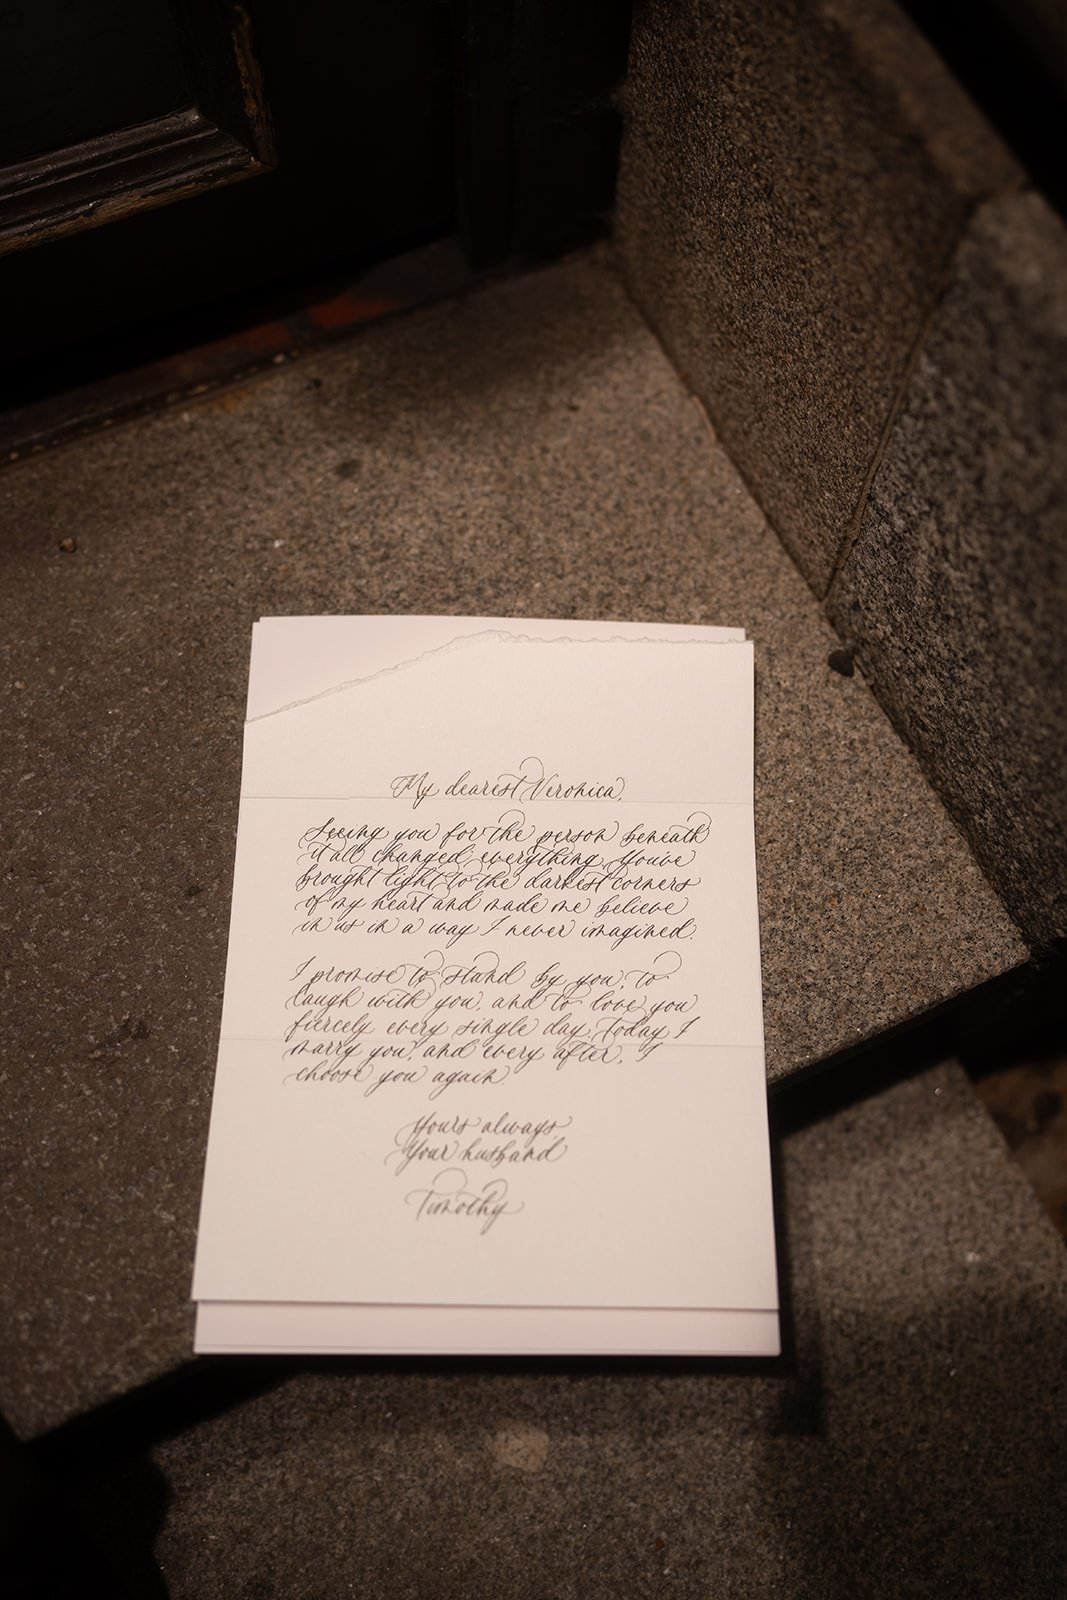 My dearest Veronica,
Seeing you for the person beneath
it all changed everything. You've
brought light to the darkest corners
of my heart and made me believe
in us in a way I never imagined.
I promise to stand by you, to
laugh with you, and to love you
fiercely every single day. Today I
marry you, and every after, I
choose you again.
Yours always,
Your husband
Timothy